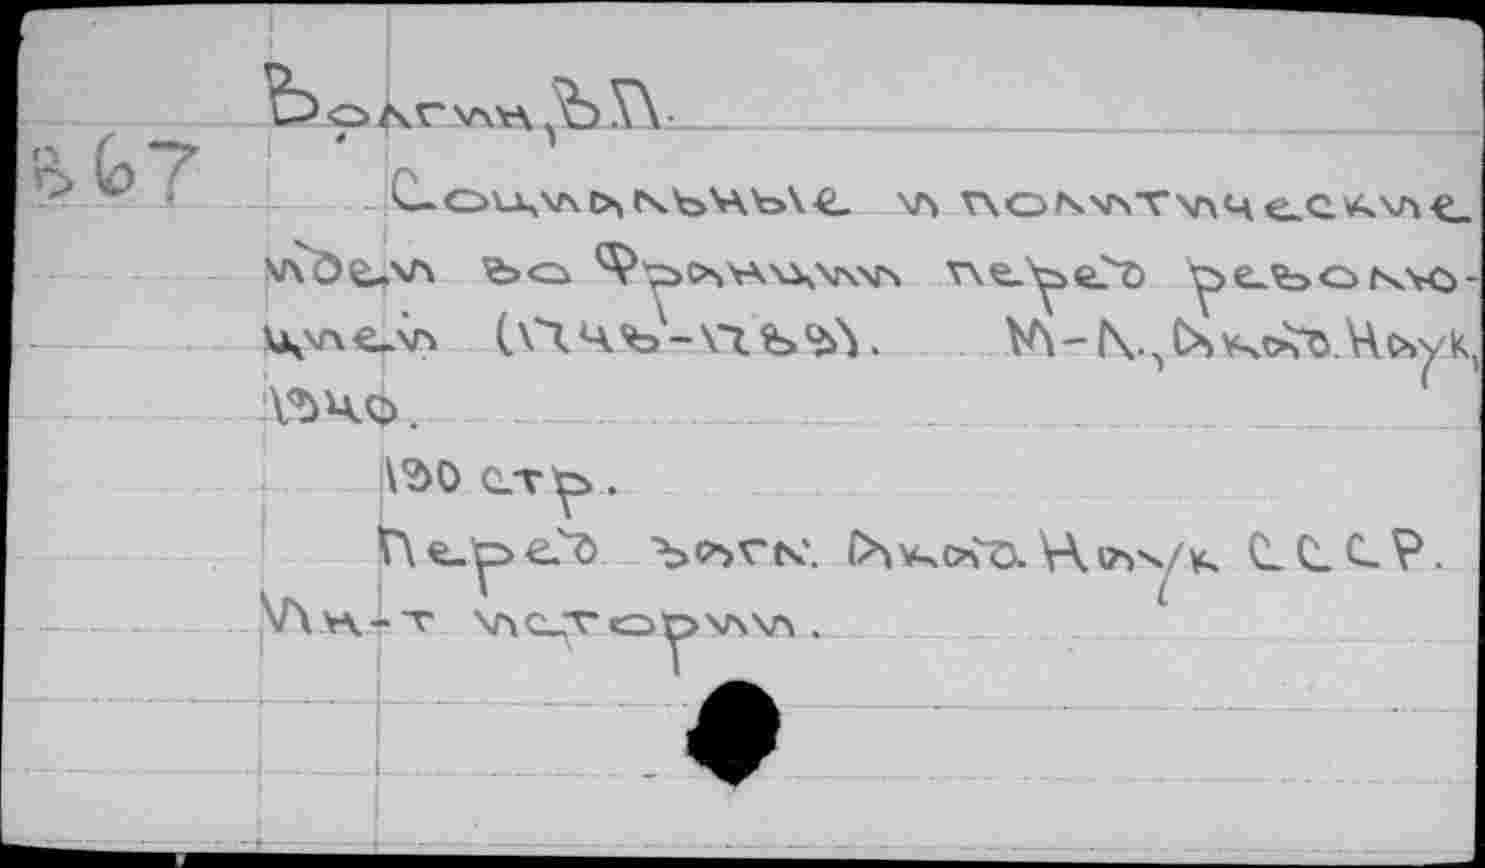 Волгин, В.П.
В67
Социальные и политические
идеи во Франции перед револю-
цией (1748-1789). М-Л., Акад. Наук,
1940.
180 стр.
Перед загл: Акад. Наук СССР.
Ин-т истории.